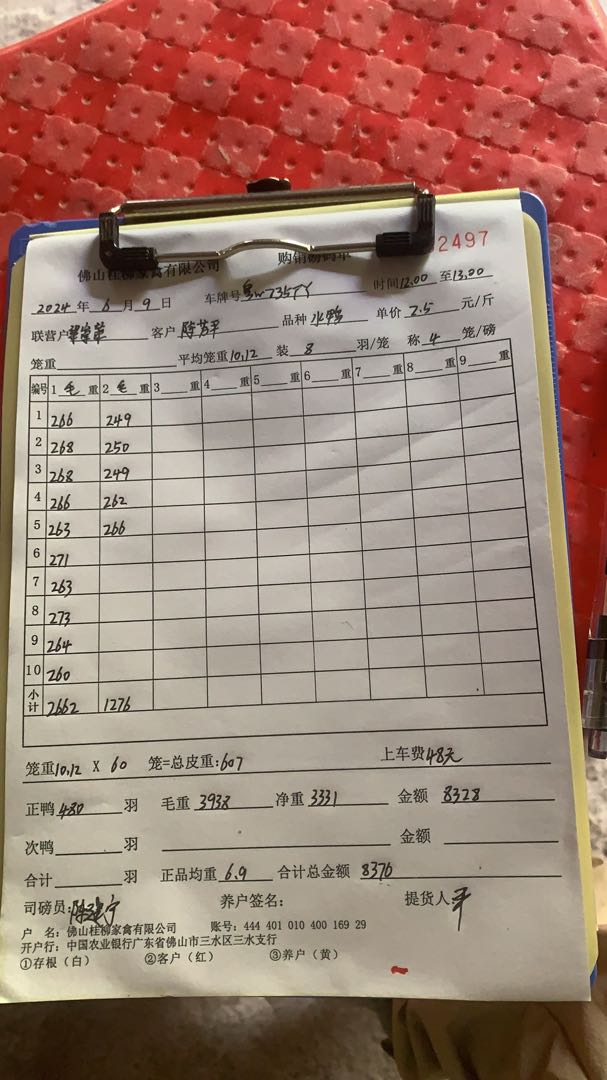 佛山桂柳家禽有限公司 购销磅码单 2497
2024 年 6 月 9 日 车牌号 粤W735TY 时间 12.00 至 13.00
联营户 客户 陈芳平 品种 水鸭 单价 2.5 元/斤
笼重 平均笼重 10.12 装 8 羽/笼 称 4 笼/磅
编号 1 毛 重 2 毛 重 3 重 4 重 5 重 6 重 7 重 8 重 9 重
1 266 249
2 268 250
3 268 249
4 266 262
5 263 266
6 271
7 263
8 273
9 264
10 260
小计 2662 1276
笼重 10.12 X 60 笼=总皮重: 607 上车费 48元
正鸭 480 羽 毛重 3938 净重 3331 金额 8328
次鸭 羽 金额
合计 羽 正品均重 6.9 合计总金额 8376
司磅员: 养户签名: 提货人 平
户 名: 佛山桂柳家禽有限公司 账号: 444 401 010 400 169 29
开户行: 中国农业银行广东省佛山市三水区三水支行
①存根（白） ②客户（红） ③养户（黄）